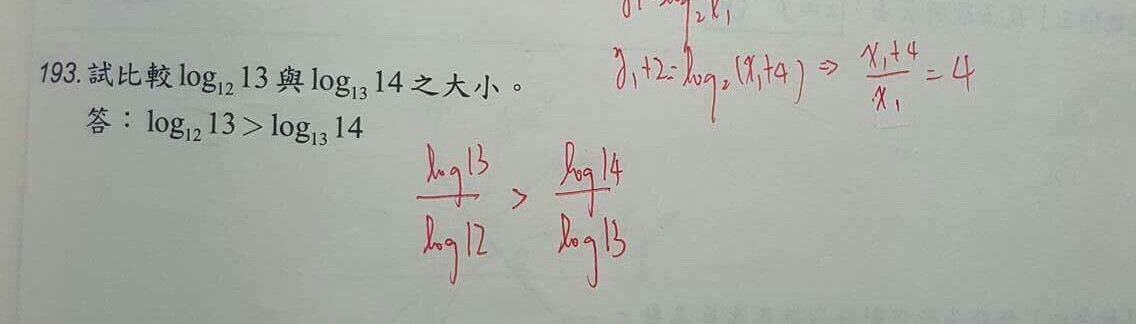 193. 試比較 log₁₂ 13 與 log₁₃ 14 之大小。
答：log₁₂ 13 > log₁₃ 14
y₁+2=log₂(x₁+4) ⇒ (x₁+4)/x₁ = 4
log13/log12 > log14/log13